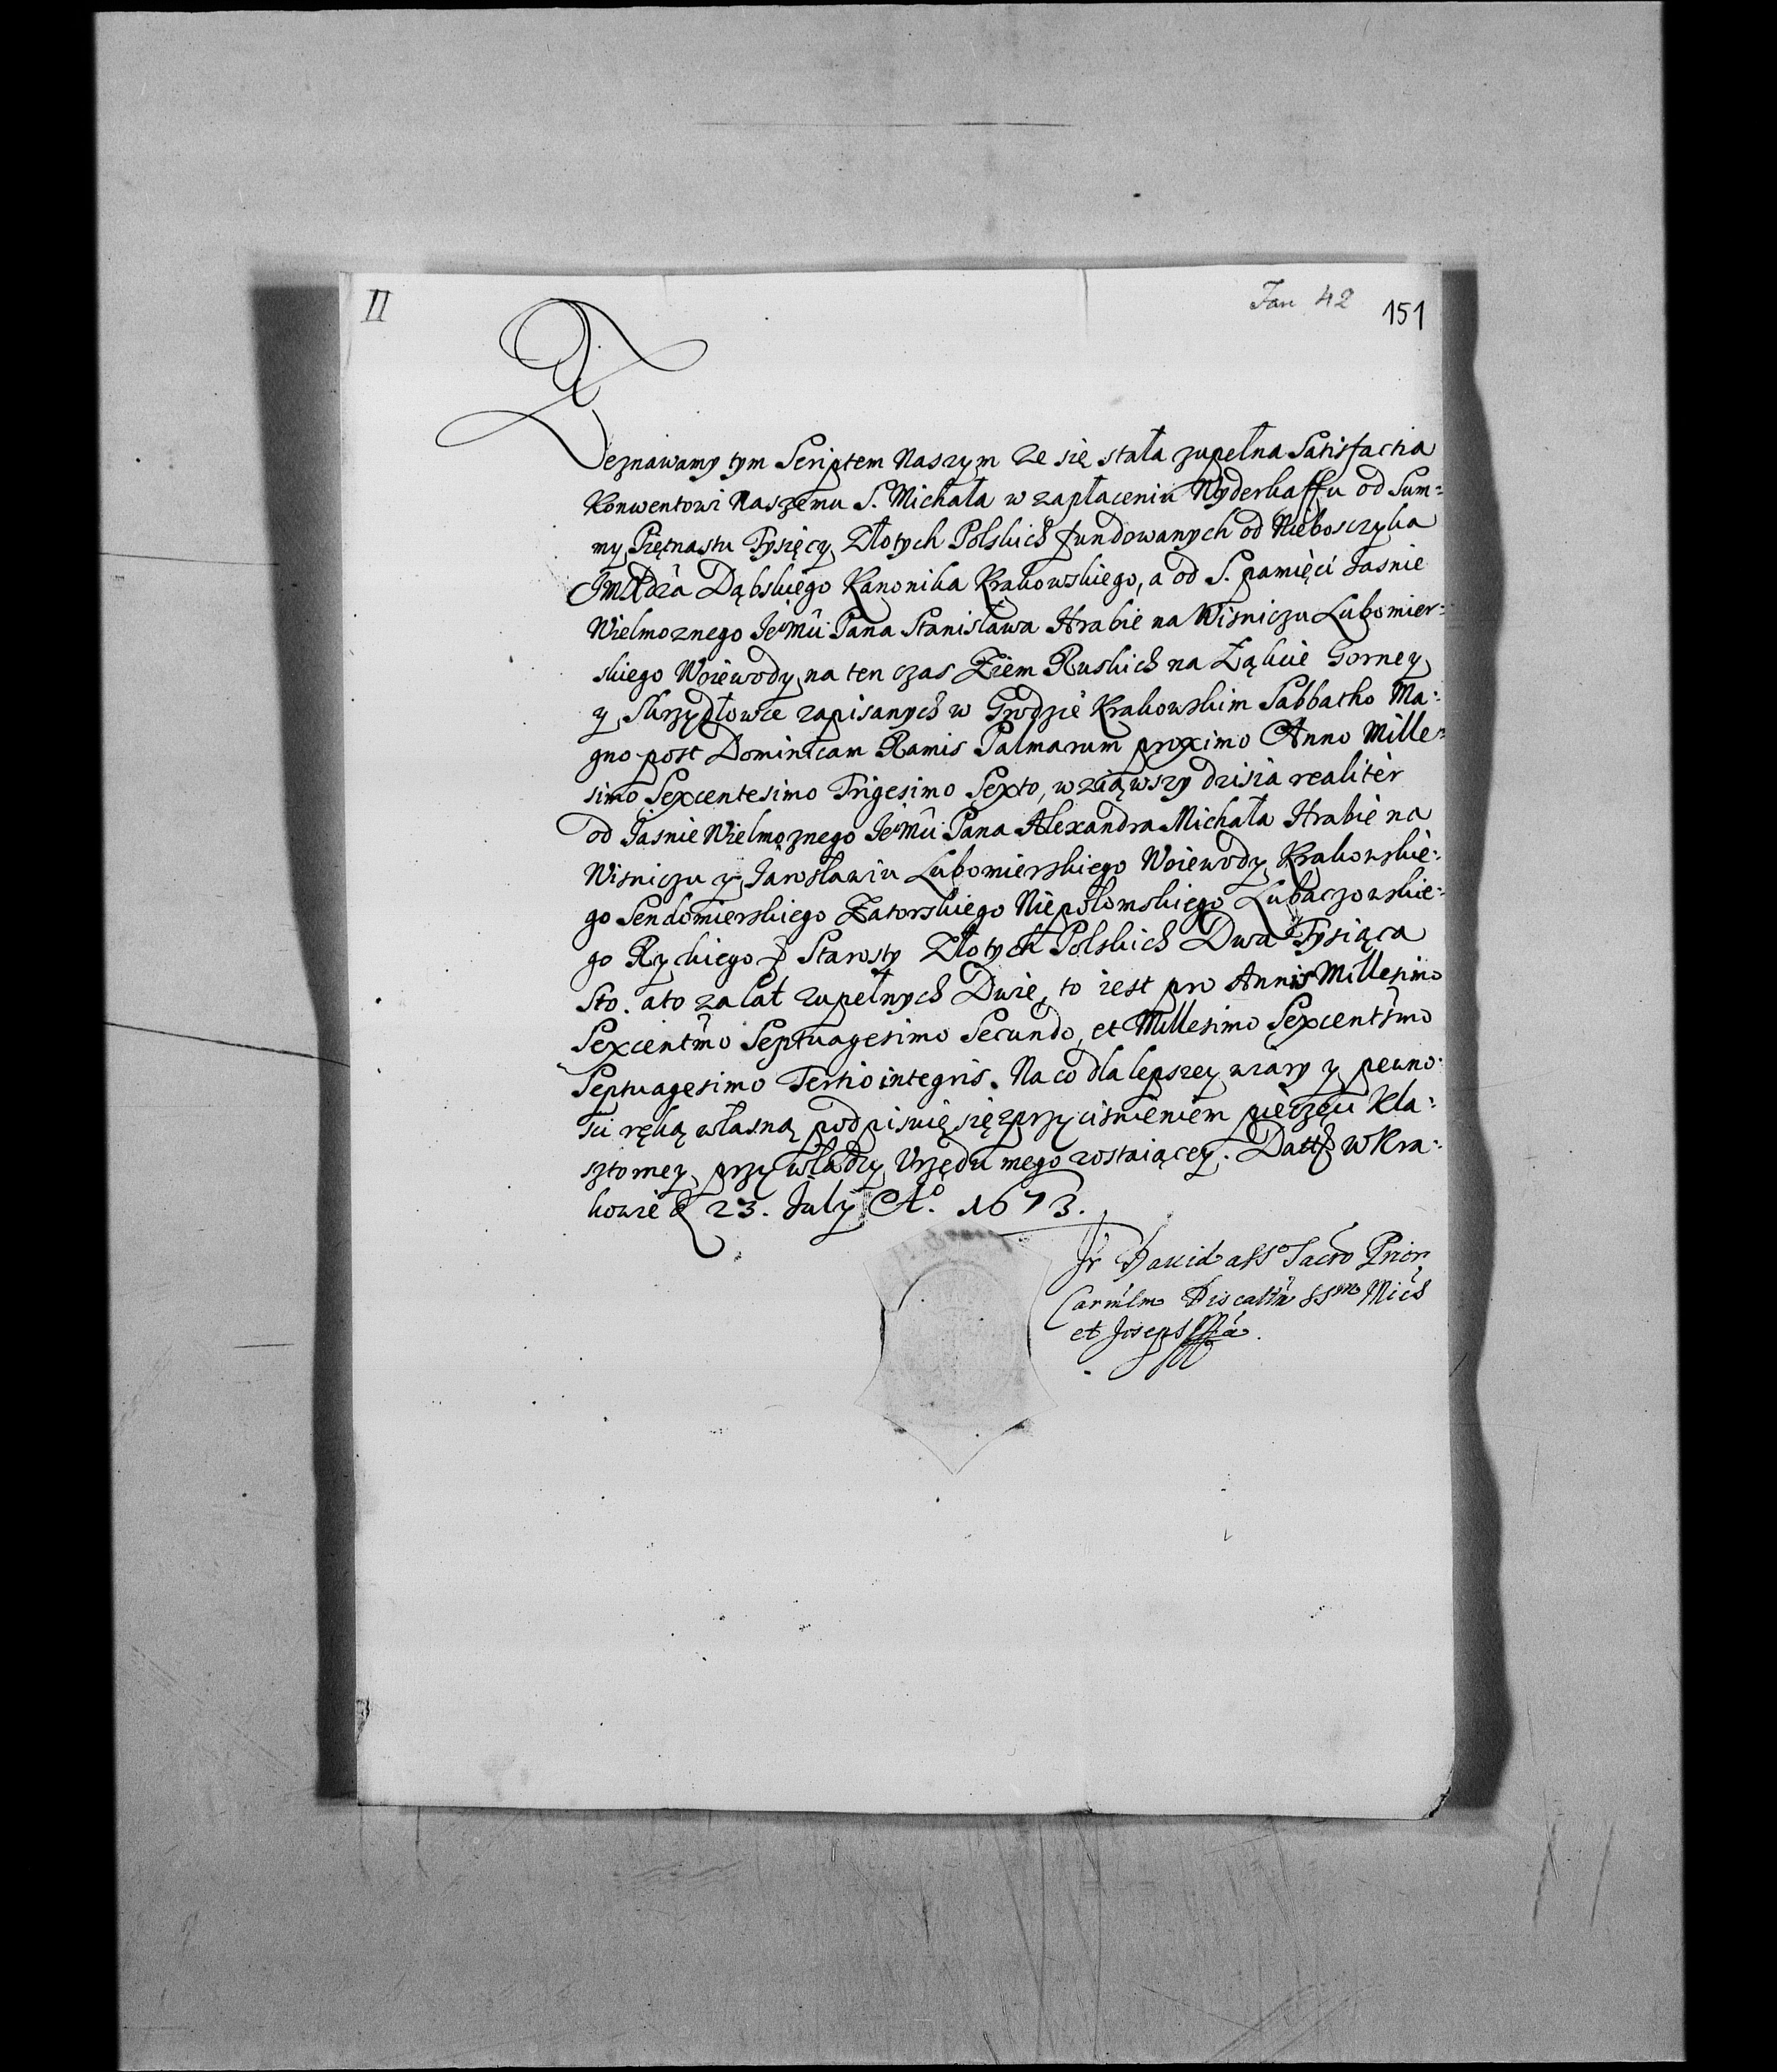 II
Jan 42 151
Zeznawamy tym Scriptem Naszym ze się stała zupełna Satisfactia
Konwentowi Naszemu S. Michała w zapłaceniu Wyderkaffu od Sum=
my Piętnastu Tysięcy Złotych Polskich fundowanych od Niebosczyka
Dąbskiego Kanonika Krakowskiego, a od S. pamięci Jasnie
Wielmoznego Je°Mû Pana Stanisława Hrabie na Wisniczu Lubomier=
skiego Woiewody na ten czas Ziem Ruskich na Łąkcie Gorney
y Skrzydłowce zapisanych w Grodzie Krakowskim Sabbatho Ma=
gno post Dominicam Ramis Palmarum proximo Anno Mille=
simo Sexcentesimo Trigesimo Sexto, wziąwszy dzisia realiter
od Jasnie Wielmoznego Je°Mû Pana Alexandra Michała Hrabie na
Wisniczu y Jarosławiu Lubomierskiego Woiewody Krakowskie=
go Sendomierskiego Zatorskiego Niepołomskiego Lubaczowskie=
go Ryckiego Starosty Złotych Polskich Dwa Tysiąca
Sto. ato za lat zupełnych Dwie, to iest pro Annis Millesimo
Sexcentmo Septuagesimo Secundo, et Millesimo Sexcentsmo
Septuagesimo Tertio integris. Na co dla lepszey wiary y pewno=
sci ręką własną podpisuię się z przycisnieniem pieczęci Kla=
sztorney, przy władzy Urzędu mego zostaiącey. Datt w Kra=
kowie d 23. July A°. 1673.
fr David a SS° Sacro Prior
Carmlm Discaltu SSm Mich
et Joseph